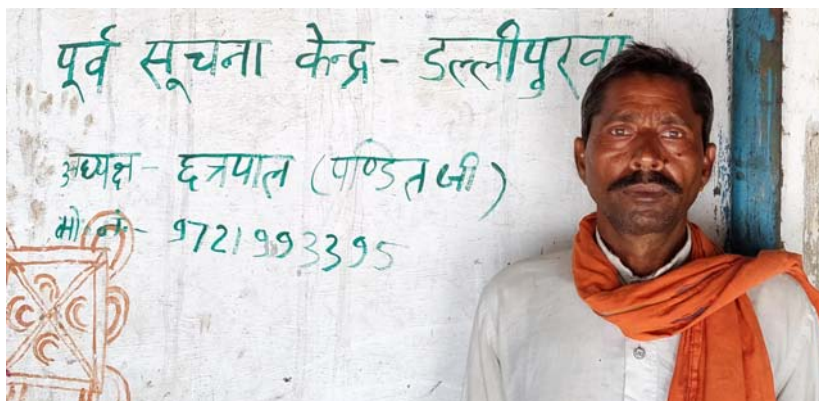 पूर्व सूचना केन्द्र - डल्लीपुरवा
अध्यक्ष - छत्रपाल (पण्डित जी)
मो. नं. - 9721993395